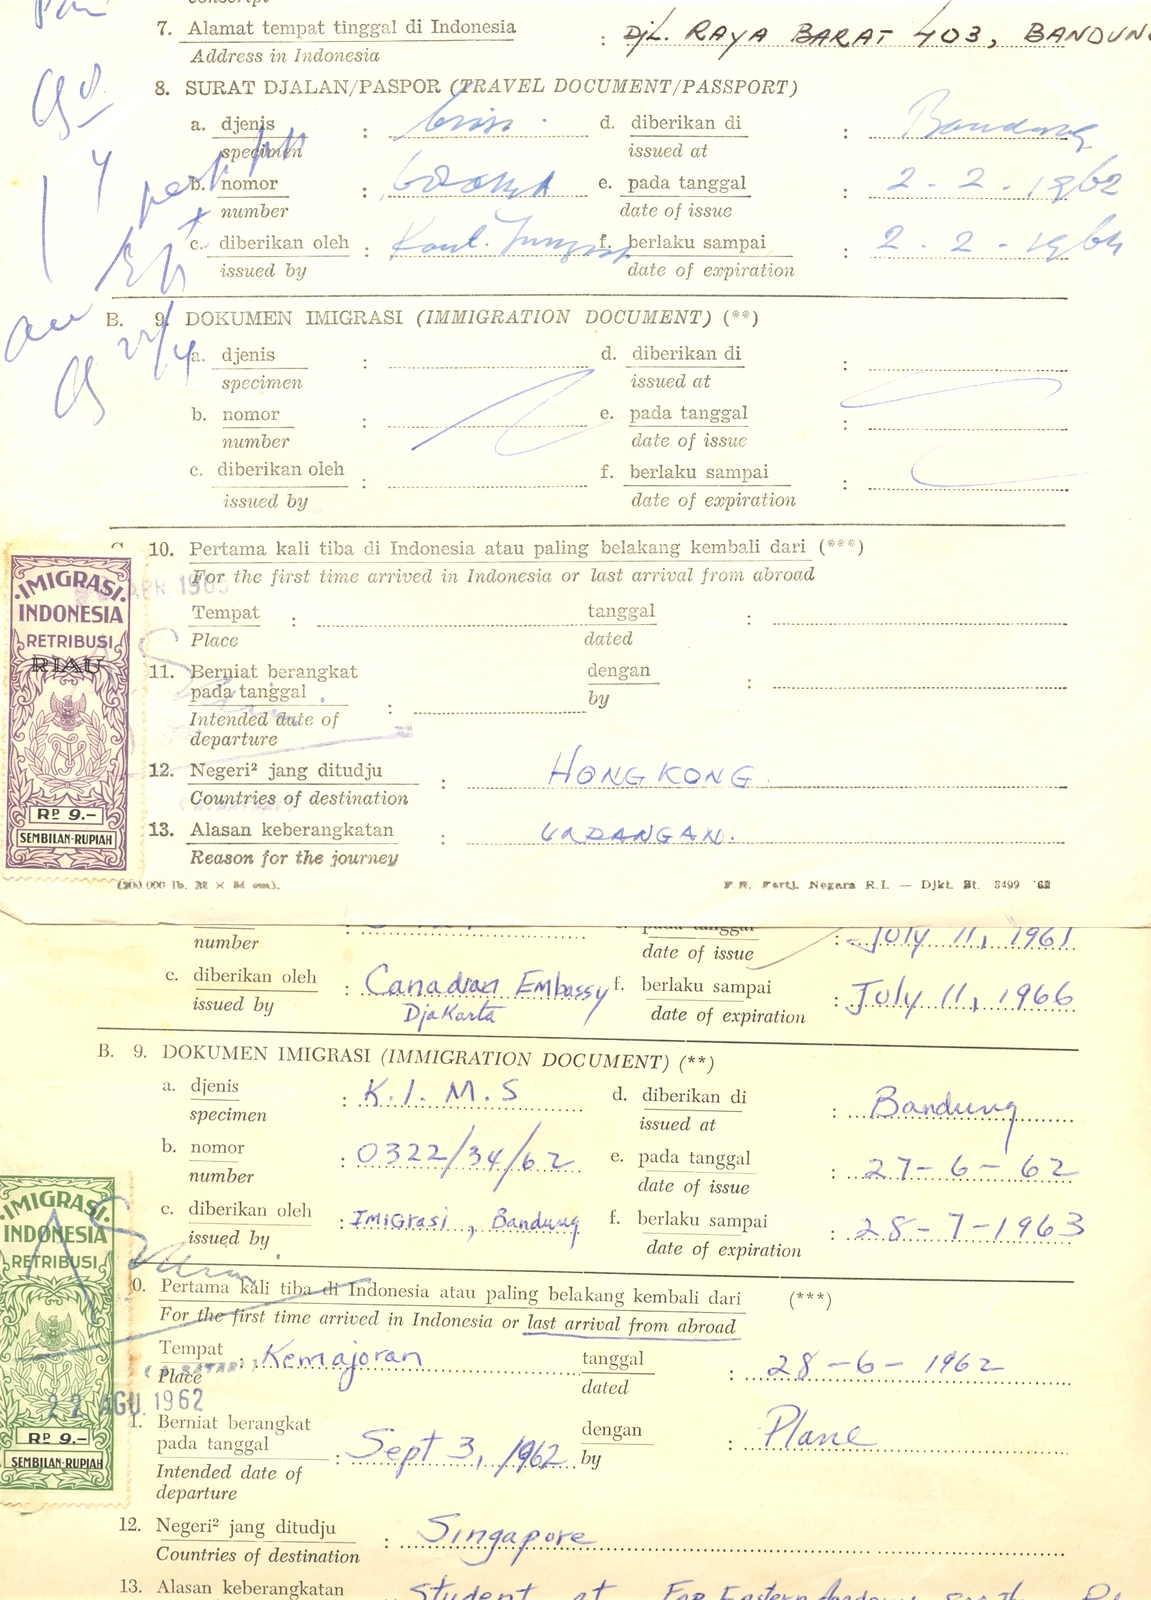 7. Alamat tempat tinggal di Indonesia : DjL. RAYA BARAT 403, BANDUNG
Address in Indonesia
8. SURAT DJALAN/PASPOR (TRAVEL DOCUMENT/PASSPORT)
a. djenis : d. diberikan di : Bandung
specimen issued at
b. nomor : e. pada tanggal : 2 - 2 - 1962
number date of issue
c. diberikan oleh : f. berlaku sampai : 2 - 2 - 1964
issued by date of expiration
B. 9. DOKUMEN IMIGRASI (IMMIGRATION DOCUMENT) (**)
a. djenis : d. diberikan di :
specimen issued at
b. nomor : e. pada tanggal :
number date of issue
c. diberikan oleh : f. berlaku sampai :
issued by date of expiration
C. 10. Pertama kali tiba di Indonesia atau paling belakang kembali dari (***)
For the first time arrived in Indonesia or last arrival from abroad
Tempat : tanggal :
Place dated
11. Berniat berangkat dengan :
pada tanggal : by
Intended date of
departure
12. Negeri² jang ditudju : HONGKONG
Countries of destination
13. Alasan keberangkatan :
Reason for the journey
IMIGRASI
INDONESIA
RETRIBUSI
RIAU
RP 9.-
SEMBILAN-RUPIAH
APR. 196
number : date of issue : July 11, 1961
c. diberikan oleh : Canadian Embassy f. berlaku sampai : July 11, 1966
issued by Djakarta date of expiration
B. 9. DOKUMEN IMIGRASI (IMMIGRATION DOCUMENT) (**)
a. djenis : K.I.M.S d. diberikan di : Bandung
specimen issued at
b. nomor : 0322/34/62 e. pada tanggal : 27-6-62
number date of issue
c. diberikan oleh : Imigrasi, Bandung f. berlaku sampai : 28-7-1963
issued by date of expiration
0. Pertama kali tiba di Indonesia atau paling belakang kembali dari (***)
For the first time arrived in Indonesia or last arrival from abroad
Tempat : Kemajoran tanggal : 28-6-1962
Place dated
1. Berniat berangkat dengan : Plane
pada tanggal : Sept 3, 1962 by
Intended date of
departure
12. Negeri² jang ditudju : Singapore
Countries of destination
13. Alasan keberangkatan Student at Far Eastern Academy
IMIGRASI
INDONESIA
RETRIBUSI
RP 9.-
SEMBILAN-RUPIAH
22 AGU. 1962